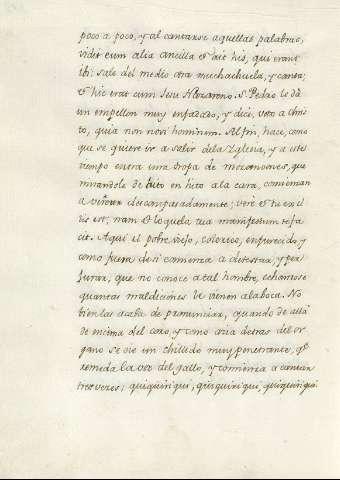 poco a poco, y al cantarse aquellas palabras,
vidit eum alia ancilla & ait his, qui erant
ibi: sale del medio otra muchachuela, y canta;
& hic erat cum Jesu Nazareno. S. Pedro le dà
un empellon muy enfadado, y dice, voto a Chris
to, quia non novi hominem. Al fin, hace, como
que se quiere ir a salir de la Yglesia, y a este
tiempo entra una tropa de mozancones, que
mirandole de hito en hito a la cara, comienzan
a descompasadamente; verè & tu ex il
lis est; nam & loquela tua manifestum te fa
cit. Aqui el pobre viejo, colerico, enfurecido y
como fuera de si comienza a detestar, y per
jurar, que no conoce a tal hombre, echandose
quantas maldiciones le vienen a la boca. No
bien las acaba de pronunciar, quando de allà
de encima del coro, y como acia detras del or
gano se oie un chillido muy penetrante, qe.
remeda la voz del gallo, y comienza a cantar
tres veces; quiquiriqui, quiquiriqui, quiquiriqui